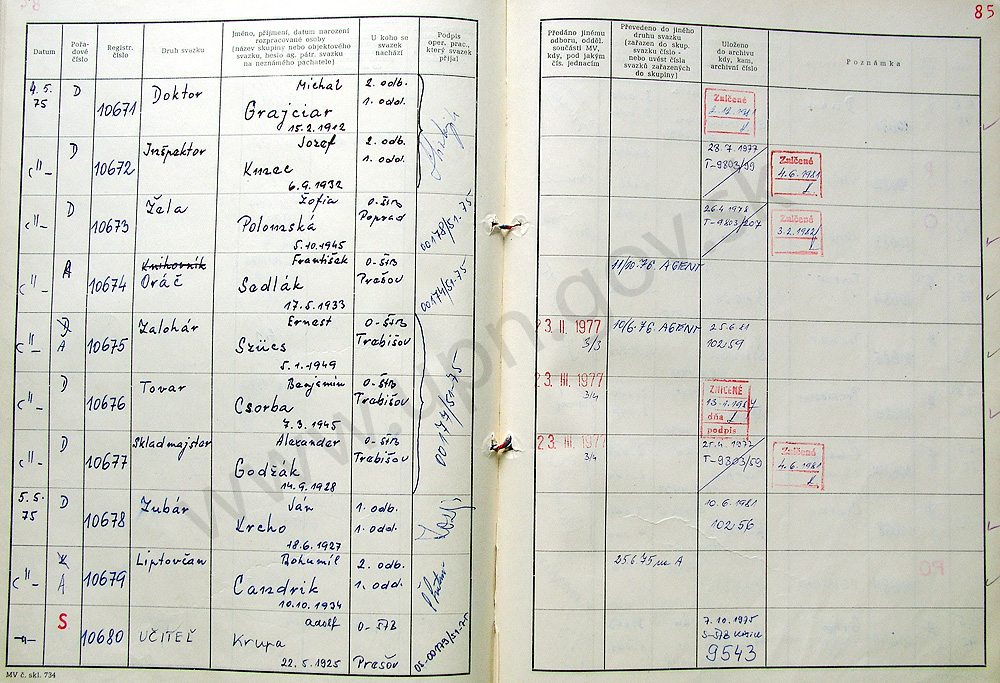 85
Datum
Pořadové číslo
Registr. číslo
Druh svazku
Jméno, příjmení, datum narození
rozpracované osoby
(název skupiny nebo objektového
svazku, heslo ag. pátr. svazku
na neznámého pachatele)
U koho se
svazek
nachází
Podpis
oper. prac.,
který svazek
přijal
Předáno jinému
odboru, odděl.
součásti MV,
kdy, pod jakým
čís. jednacím
Převedeno do jiného
druhu svazku
(zařazen do skup.
svazku číslo -
nebo uvést čísla
svazků zařazených
do skupiny)
Uloženo
do archivu
kdy, kam,
archivní číslo
Poznámka
4. 5.
75
D
10671
Doktor
Michal
Grajciar
15. 2. 1912
2. odb.
1. odd.
Zničené
D
10672
Inšpektor
Jozef
6. 9. 1932
2. odb.
1. odd.
28. 7. 1977
T-9803/99
Zničené
4. 6. 1981
D
10673
Žela
Žofia
Polomská
5. 10. 1945
O-ŠtB
Poprad
00178/51-75
26.4 1978
T-9803/207
Zničené
3. 2. 1982
A
10674
Knihovník
Oráč
František
Sadlák
17. 5. 1933
O-ŠtB
Prešov
00174/51-75
11/10-76. AGENT
D
A
10675
Zalohár
Ernest
Szücs
5. 1. 1949
O-ŠtB
Trebišov
23. II. 1977
3/3
10/6-76. AGENT
25.6.81
10259
D
10676
Tovar
Benjamin
Csorba
7. 3. 1945
O-ŠtB
Trebišov
00171/51-75
23. III. 1977
3/4
ZNIČENÉ
dňa
podpis
D
10677
Skladmajster
Alexander
Godžák
14. 9. 1928
O-ŠtB
Trebišov
23. III. 1977
3/4
25.4. 1977
T-9803/59
Zničené
4. 6. 1981
5. 5.
75
D
10678
Zubár
Ján
Krcho
18. 6. 1927
1. odb.
1. odd.
10. 6. 1981
10256
A
10679
Liptovčan
Bohumil
Candrik
10. 10. 1934
2. odb.
1. odd.
25.6.75, na A
S
10680
UČITEĽ
Adolf
Krupa
22. 5. 1925
O-ŠTB
Prešov
7. 10. 1975
9543
MV č. skl. 734
www.upn.gov.sk